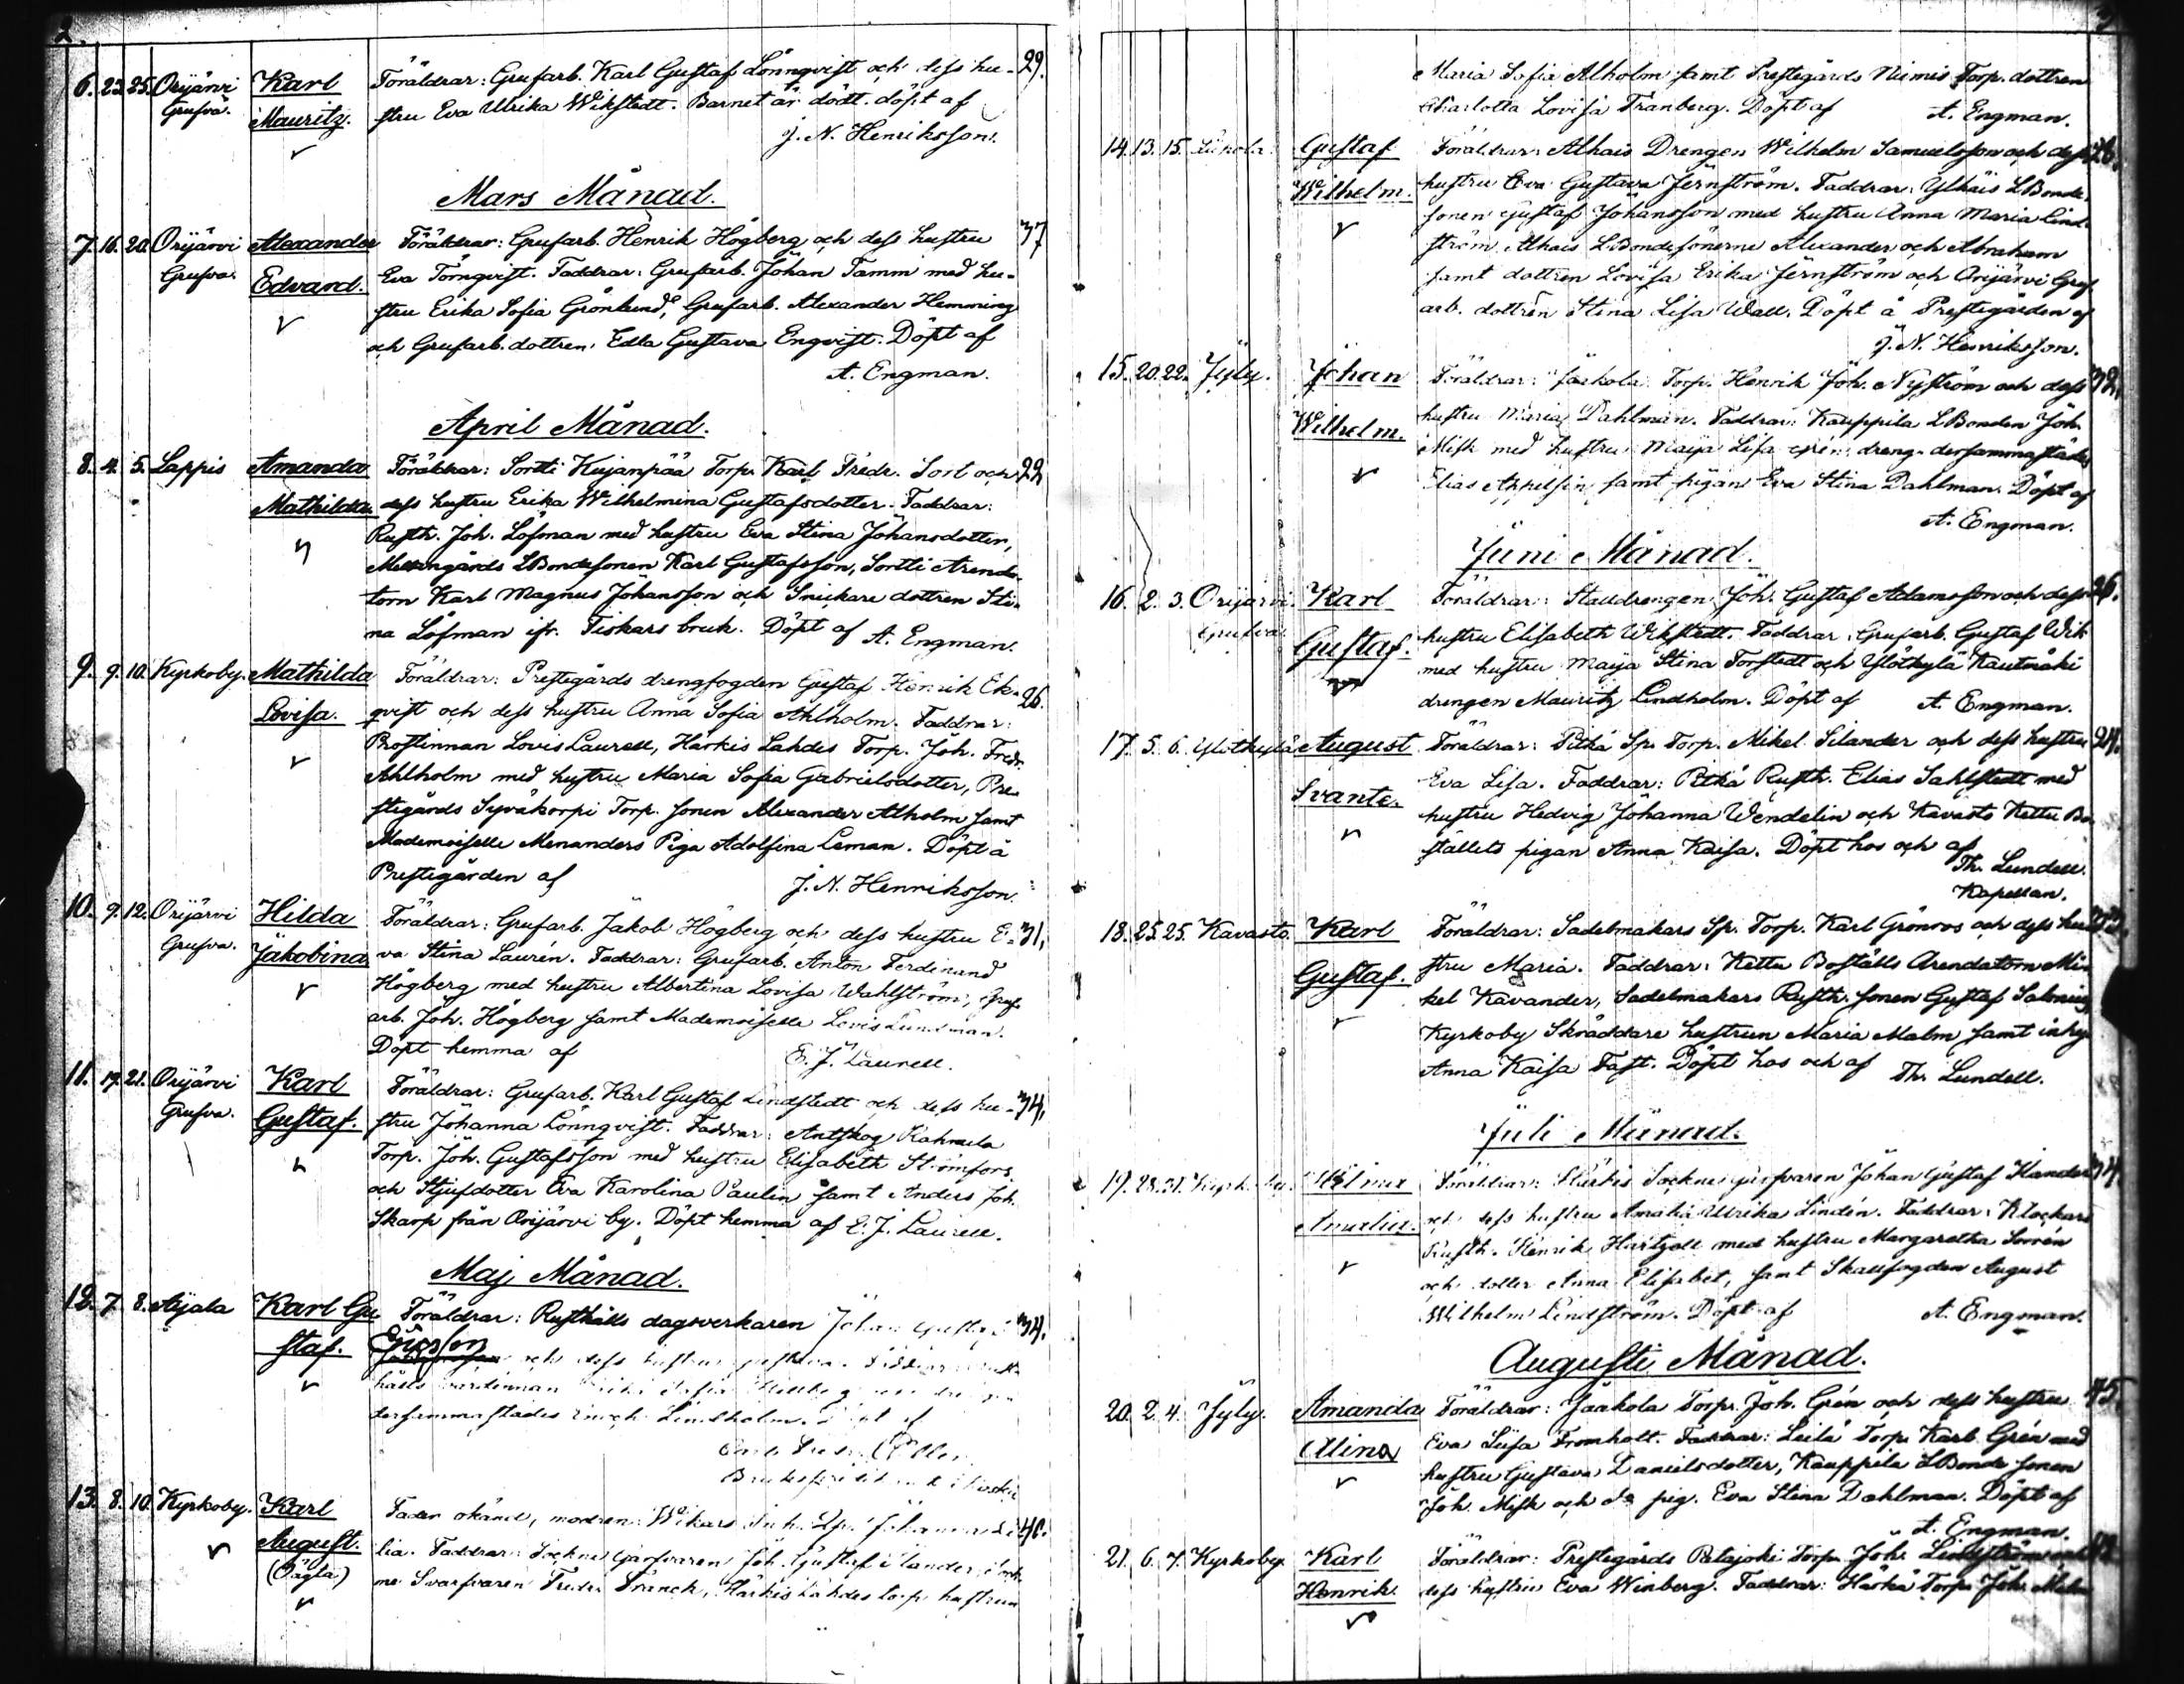 2.
6. 23. 25. Orijärvi Karl Föräldrar: Grufarb. Karl Gustaf Lönnqvist och dess hu- 29.
Grufva. Mauritz. stru Eva Ulrika Wikstedt. Barnet är dödt. döpt af
J. N. Henriksson.
Mars Månad.
7. 16. 20. Orijärvi Alexander Föräldrar: Grufarb. Henrik Högberg och dess hustru 37
Grufva. Edvard. Eva Törnqvist. Faddrar: Grufarb. Johan Tamm med hu-
stru Erika Sofia Grönlund, Grufarb. Alexander Hemming
och Grufarb. dottren Edla Gustava Engvist. Döpt af
A. Engman.
April Månad.
8. 4. 5. Lappis Amanda Föräldrar: Sortti Kujanpää Torp. Karl Fredr. Sort och 22
Mathilda. dess hustru Erika Wilhelmina Gustafsdotter. Faddrar:
Rusth. Joh. Löfman med hustru Eva Stina Johansdotter,
LBondesonen Karl Gustafsson, Sortti Arenda-
torn Karl Magnus Johansson och Snickare dottren Sti-
na Löfman ifr. Fiskars bruk. Döpt af A. Engman.
9. 9. 10. Kyrkoby. Mathilda Föräldrar: Prestegårds drengfogden Gustaf Henrik Ek- 26.
Lovisa. qvist och dess hustru Anna Sofia Ahlholm. Faddrar:
Prostinnan Lovis Laurell, Härkis Lahdes Torp. Joh. Fredr.
Ahlholm med hustru Maria Sofia Gabrielsdotter, Pre-
stegårds Syväkorpi Torp. sonen Alexander Alholm samt
Mademoiselle Menanders Piga Adolfina Leman. Döpt å
Prestegården af J. N. Henriksson.
10. 9. 12. Orijärvi Hilda Föräldrar: Grufarb. Jakob Högberg och dess hustru E- 31,
Grufva. Jakobina va Stina Laurén. Faddrar: Grufarb. Anton Ferdinand
Högberg med hustru Albertina Lovisa Wahlström, Gruf-
arb. Joh. Högberg samt Mademoiselle Lovis Lundman.
Döpt hemma af E. J. Laurell.
11. 19. 21. Orijärvi Karl Föräldrar: Grufarb. Karl Gustaf Lindstedt och dess hu- 34,
Grufva. Gustaf. stru Johanna Lönnqvist. Faddrar: Antskog
Torp. Joh. Gustafsson med hustru Elisabeth Strömfors
och Stjufdotter Eva Karolina Paulin samt Anders Joh.
Skarp från Orijärvi by. Döpt hemma af E. J. Laurell.
Maj Månad.
12. 7. 8. Aijala Karl Gu Föräldrar: Rusthålls dagsverkaren Johan Gustaf 34.
staf. Ericsson och dess hustru Faddrar
hålls värdinnan Sofia
dersammastädes Lindholm. Döpt af
13. 8. 10. Kyrkoby. Karl Fader okänd, modren: Johanna 40.
August. lia. Faddrar: Sockne garfvaren Joh. Gustaf
(Oägta) ne Svarfvaren Fredr. Franck, Härkis Lahdes torp. hustrun
Maria Sofia Alholm samt Prestegårds Niemis Torp. dottren
Charlotta Lovisa Tranberg. Döpt af A. Engman.
14. 13. 15. Gustaf Föräldrar: Alhais Drengen Wilhelm Samuelsson och dess 26.
Wilhelm. hustru Eva Gustava Jernström. Faddrar: Ylhäis LBonde-
sonen Gustaf Johansson med hustru Anna Maria Lind-
ström, Alhais LBondesönerne Alexander och Abraham
samt dottren Lovisa Erika Jernström och Orijärvi Gruf-
arb. dottren Stina Lisa Wall. Döpt å Prestegården af
J. N. Henriksson.
15. 20. 22. Jyly. Johan Föräldrar: Jaakola Torp. Henrik Joh. Nyström och dess 32,
Wilhelm. hustru Maria Dahlman. Faddrar: Kauppila LBonden Joh.
Misk med hustru Maija Lisa dreng. dersammastädes
Elias Appelsin samt pigan Eva Stina Dahlman. Döpt af
A. Engman.
Juni Månad.
16. 2. 3. Orijärvi Karl Föräldrar: Stalldrengen Joh. Gustaf Adamsson och dess 26.
Grufva Gustaf. hustru Elisabeth Wikstedt. Faddrar: Grufarb. Gustaf Wik
med hustru Maija Stina Forstedt och Ylötkylä Kautmäki
drengen Mauritz Lindholm. Döpt af A. Engman.
17. 5. 6. Ylötkylä August Föräldrar: Pitkä Sp. Torp. Mikel Silander och dess hustru 24.
Svante. Eva Lisa. Faddrar: Pitkä Rusth. Elias Sahlstedt med
hustru Hedvig Johanna Wendelin och Kavasto Kettu Bo-
ställets pigan Anna Kaisa. Döpt hos och af
Th. Lundell.
Kapellan.
18. 25. 25. Kavasto. Karl Föräldrar: Sadelmakars Sp. Torp. Karl Grönroos och dess hu
Gustaf. stru Maria. Faddrar: Kettu Boställs Arendatorn Mi-
kel Kavander, Sadelmakars Rusth. sonen Gustaf Salonius,
Kyrkoby Skräddare hustrun Maria Malm samt inhy
Anna Kaisa Fast. Döpt hos och af Th. Lundell.
Juli Månad.
19. 28. 31. Kyrkoby. Föräldrar: Härkis Sockne garfvaren Johan Gustaf Klander 34.
Amalia. och dess hustru Amalia Ulrika Lindén. Faddrar: Klockars
Rusth. Henrik Hartzell med hustru Margaretha
och dotter Anna Elisabet, samt Skallfogden August
Wilhelm Lindström. Döpt af A. Engman.
Augusti Månad.
20. 2. 4. Jyly. Amanda Föräldrar: Jaakola Torp. Joh. Grén och dess hustru 45,
Alina Eva Lisa Fromholt. Faddrar: Leilä Torp. Karl Grén med
hustru Gustava Danielsdotter, Kauppila LBonde sonen
Joh. Misk och do pig. Eva Stina Dahlman. Döpt af
A. Engman.
21. 6. 7. Kyrkoby Karl Föräldrar: Prestegårds Patajoki Torp. Joh. Lindström och
Henrik. dess hustru Eva Winberg. Faddrar: Härkä Torp. Joh.